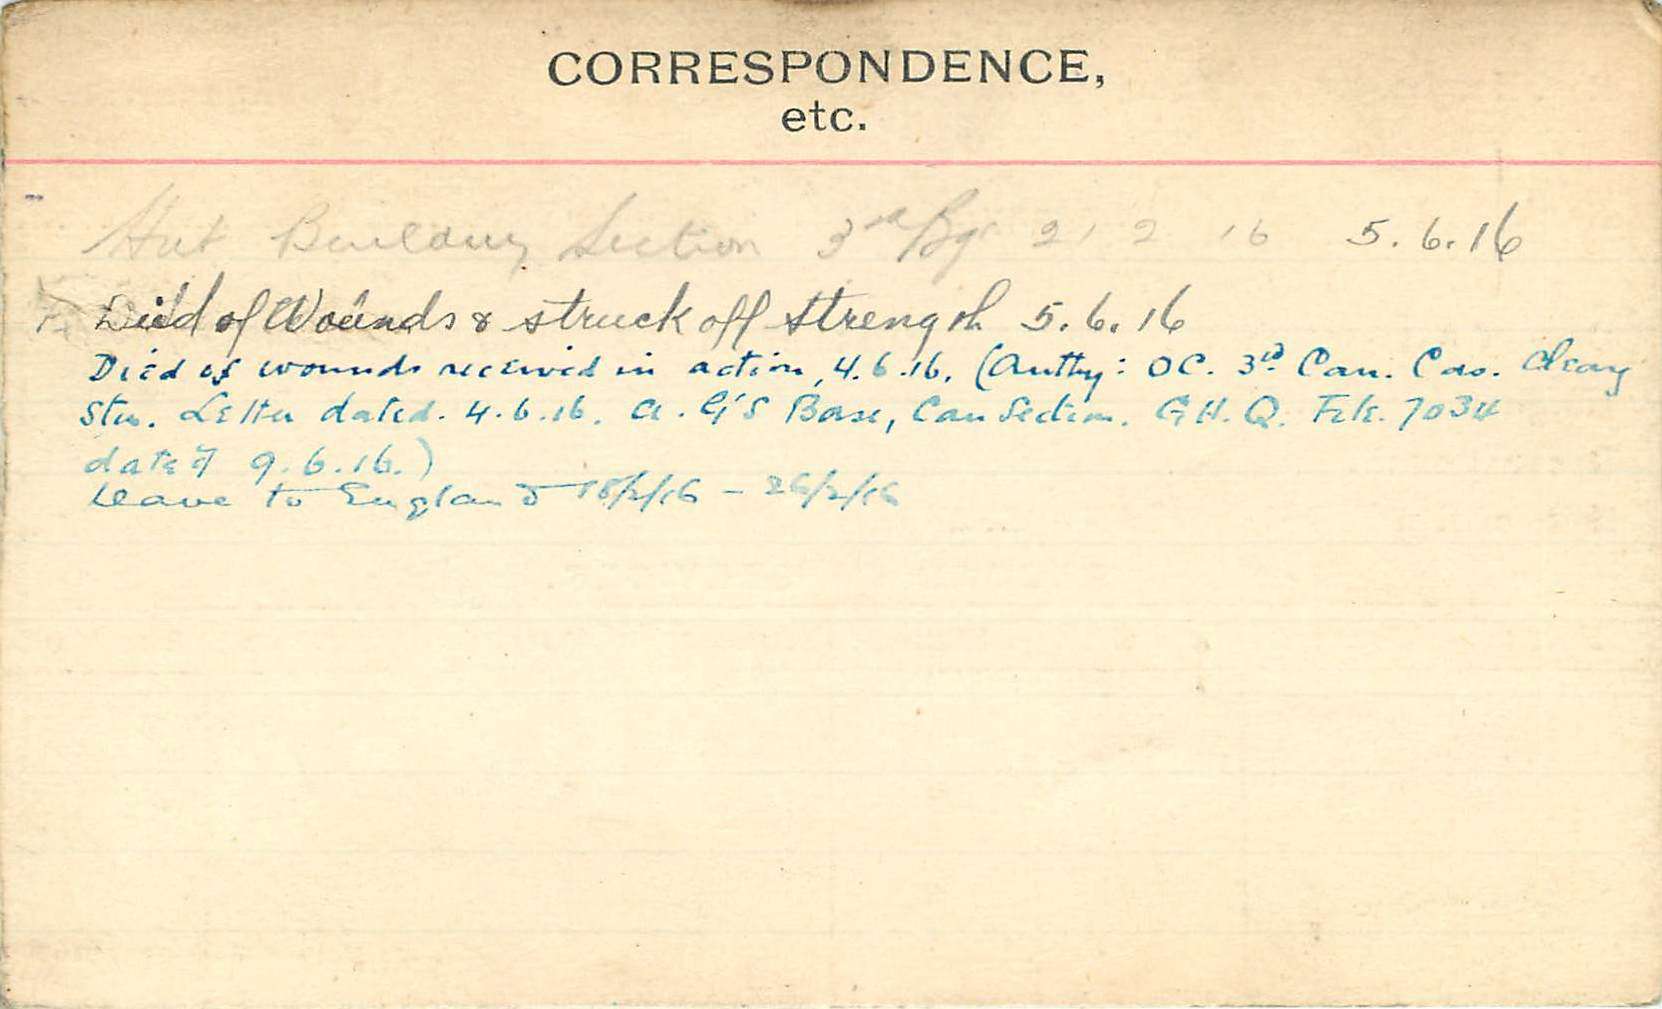 CORRESPONDENCE,
etc.
Hut Building Section 3rd Bge 21 2 16 5.6.16
Died of Wounds & struck off strength 5.6.16
Died of wounds received in action, 4.6.16. (Authy: OC. 3rd Can. Cas. Clearg
Stn. Letter dated. 4.6.16. A.G's Base, Can Section. G.H.Q. File. 7034
dated 9.6.16.)
Leave to England 18/2/16 - 26/2/16